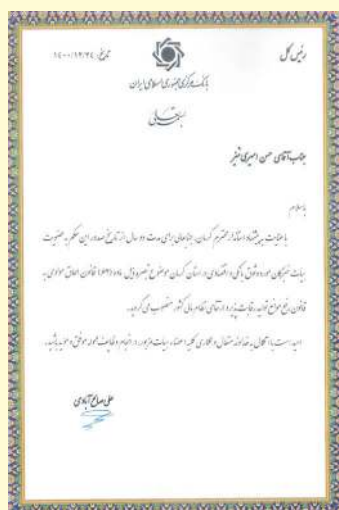 رئیس کل
تاریخ: ۱۴۰۰/۱۲/۲۴
بانک مرکزی جمهوری اسلامی ایران
بسمه تعالی
جناب آقای حسن امیری خنجر
با سلام
با عنایت به پیشنهاد استاندار محترم کرمان، جنابعالی برای مدت دو سال از تاریخ صدور این حکم به عضویت
هیات خبرگان مورد وثوق بانکی و اقتصادی در استان کرمان موضوع تبصره ذیل ماده قانون الحاق موادی به
قانون رفع موانع تولید رقابت پذیر و ارتقای نظام مالی کشور منصوب می گردید.
امید است با اتکال به خداوند متعال و همکاری کلیه اعضاء هیات مزبور، در انجام وظایف محوله موفق و موید باشید.
علی صالح آبادی